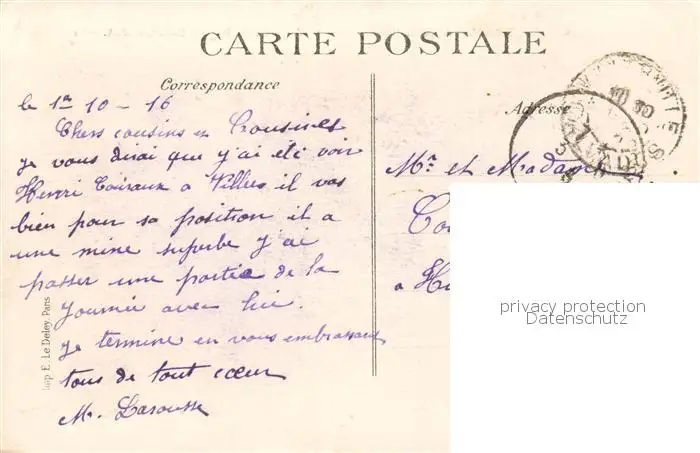 CARTE POSTALE
Correspondance
Adresse
le 1er 10 - 16
Chers cousins et Cousines
je vous dirai que j'ai été voir
Henri a Villers il vas
bien pour sa position il a
une mine superbe j'ai
passer une partie de la
journée avec lui.
je termine en vous embrassant
tous de tout cœur
M. Larousse
Mr. et Madame
Co
a H
Imp E. Le Deley, Paris
privacy protection
Datenschutz